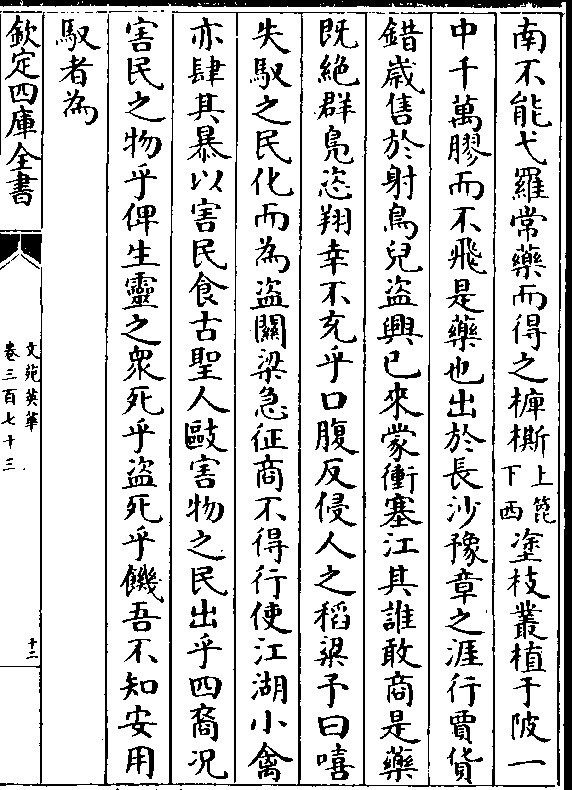 南不能弋羅常藥而得之㯅㯕上箆下西塗枝叢植于陂一
中千萬膠而不飛是藥也出於長沙豫章之涯行賈貨
錯歳售於射鳥兒盜興已來蒙衝塞江其誰敢商是藥
既絶群鳬恣翔幸不充乎口腹反侵人之稻粱予曰嘻
失馭之民化而為盜關梁急征商不得行使江湖小禽
亦肆其暴以害民食古聖人敺害物之民出乎四裔况
害民之物乎俾生靈之衆死乎盜死乎饑吾不知安用
馭者為
欽定四庫全書
文苑英華
卷三百七十三
十二